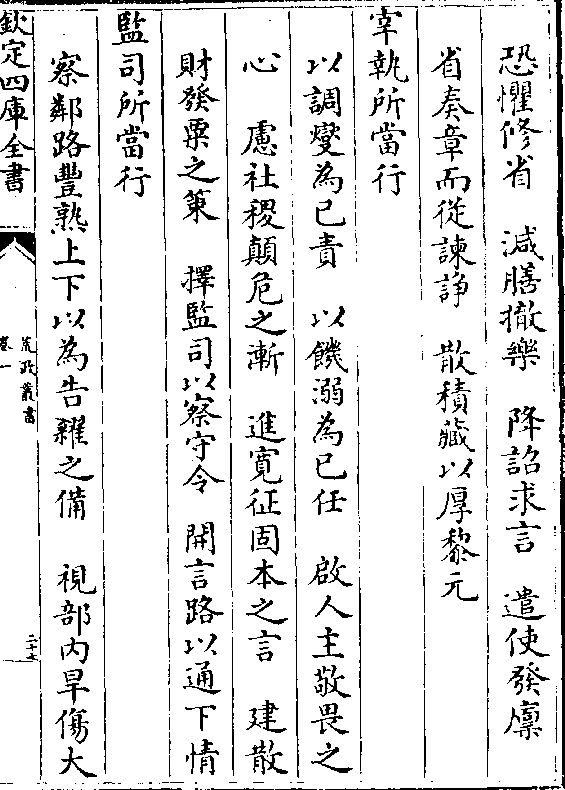 恐懼修省　減膳撤樂　降詔求言　遣使發廩
省奏章而從諫諍　散積藏以厚黎元
宰執所當行
以調燮為已責　以饑溺為已任　啟人主敬畏之
心　慮社稷顛危之漸　進寛征固本之言　建散
財發粟之䇿　擇監司以察守令　開言路以通下情
監司所當行
察鄰路豐熟上下以為告糴之備　視部内旱傷大
欽定四庫全書
荒政叢書
卷一
二十七